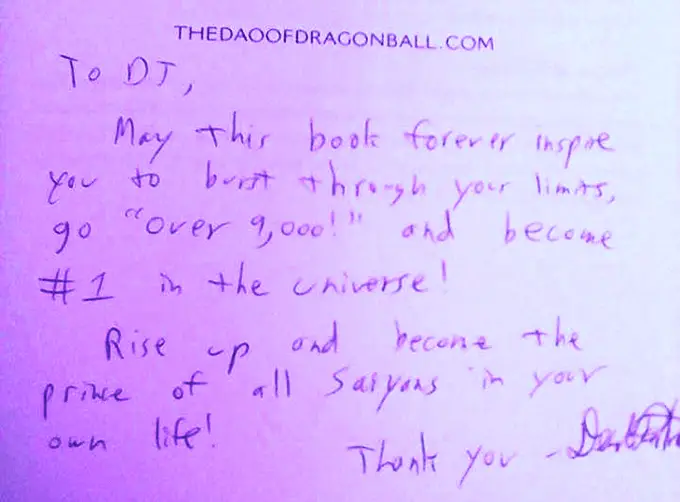 THEDAOOFDRAGONBALL.COM
To DJ,
May this book forever inspire
you to burst through your limits,
go "over 9,000!" and become
#1 in the universe!
Rise up and become the
prince of all Saiyans in your
own life!
Thank you -